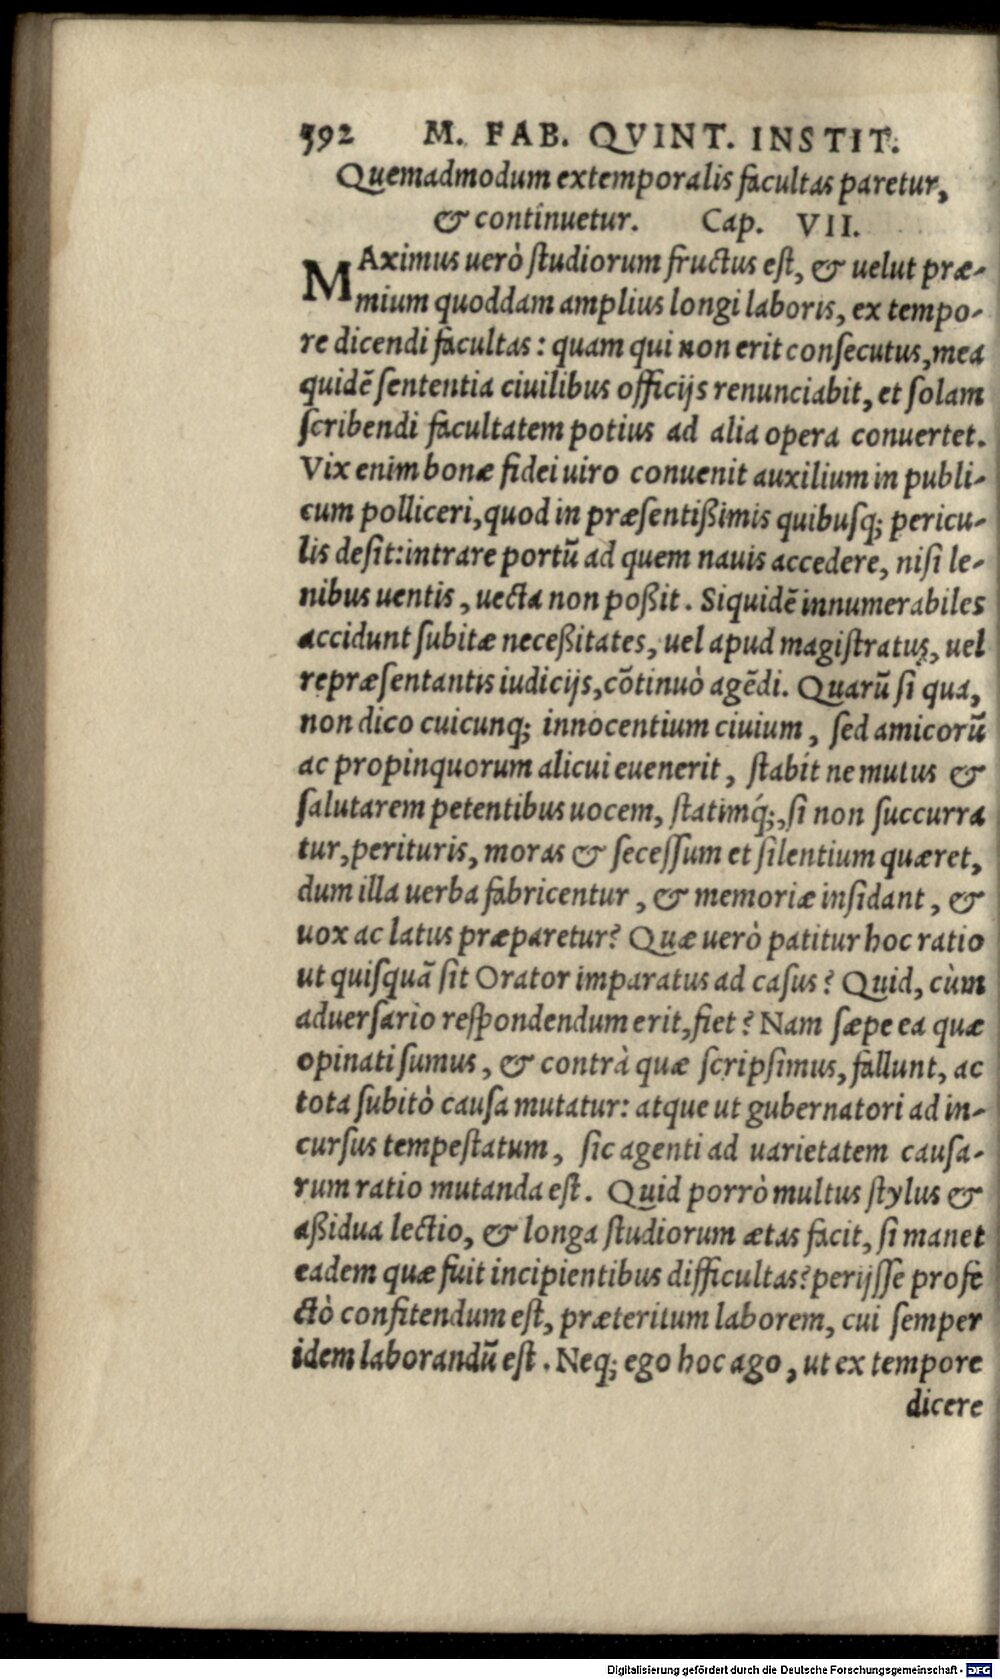 592 M. FAB. QVINT. INSTIT.
Quemadmodum extemporalis facultas paretur,
& continuetur. Cap. VII.
MAximus uerò ſtudiorum fructus eſt, & uelut præ-
mium quoddam amplius longi laboris, ex tempo-
re dicendi facultas: quam qui non erit conſecutus, mea
quidẽ ſententia ciuilibus officijs renunciabit, et ſolam
ſcribendi facultatem potius ad alia opera conuertet.
Vix enim bonæ fidei uiro conuenit auxilium in publi-
cum polliceri, quod in præſentißimis quibuſq; pericu-
lis deſit: intrare portũ ad quem nauis accedere, niſi le-
nibus uentis, uecta non poßit. Siquidẽ innumerabiles
accidunt ſubitæ neceßitates, uel apud magiſtratus, uel
repræſentantis iudicijs, cõtinuò agẽdi. Quarũ ſi qua,
non dico cuicunq; innocentium ciuium, ſed amicorũ
ac propinquorum alicui euenerit, ſtabit ne mutus &
ſalutarem petentibus uocem, ſtatimq́;, ſi non ſuccurra
tur, perituris, moras & ſeceſſum et ſilentium quæret,
dum illa uerba fabricentur, & memoriæ inſidant, &
uox ac latus præparetur? Quæ uerò patitur hoc ratio
ut quiſquã ſit Orator imparatus ad caſus? Quid, cùm
aduerſario reſpondendum erit, fiet? Nam ſæpe ea quæ
opinati ſumus, & contrà quæ ſcripſimus, fallunt, ac
tota ſubitò cauſa mutatur: atque ut gubernatori ad in-
curſus tempeſtatum, ſic agenti ad uarietatem cauſa-
rum ratio mutanda eſt. Quid porrò multus ſtylus &
aßidua lectio, & longa ſtudiorum ætas facit, ſi manet
eadem quæ fuit incipientibus difficultas? perijſſe profe
ctò confitendum eſt, præteritum laborem, cui ſemper
idem laborandũ eſt. Neq; ego hoc ago, ut ex tempore
dicere
Digitalisierung gefördert durch die Deutsche Forschungsgemeinschaft - DFG